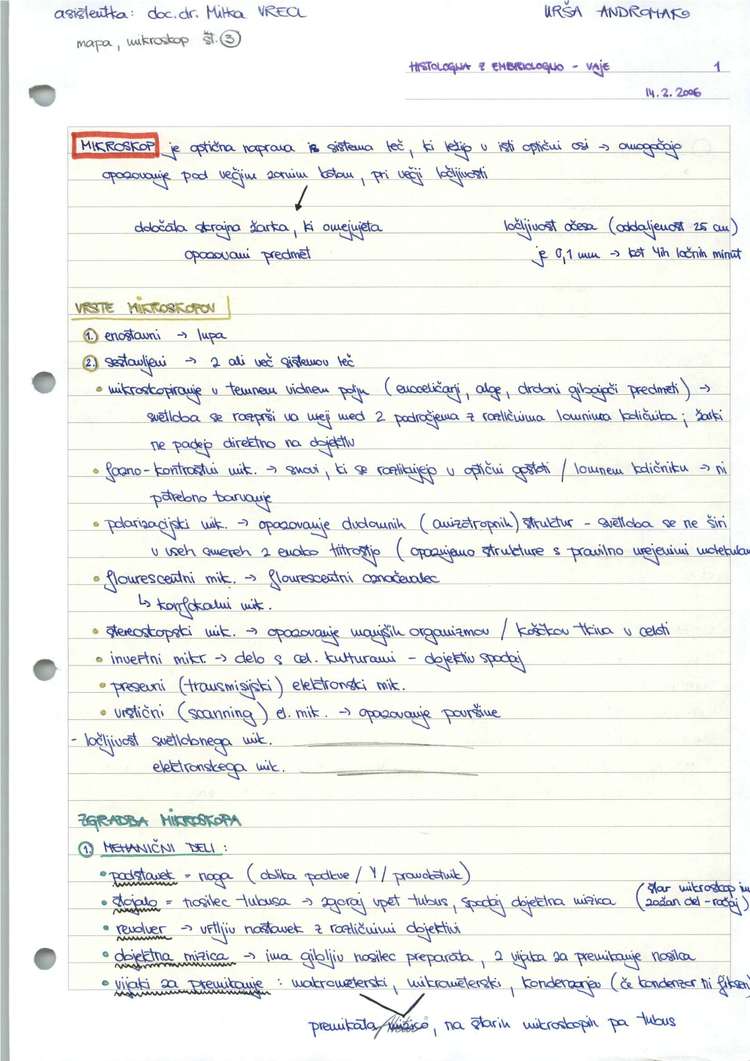 asistentka: doc. dr. Milka VRECL
URŠA ANDROMAKO
mapa, mikroskop št. 3
HISTOLOGIJA Z EMBRIOLOGIJO - VAJE 1
14. 2. 2006
MIKROSKOP je optična naprava iz sistema leč, ki ležijo v isti optični osi → omogočajo
opazovanje pod večjim zornim kotom, pri večji ločljivosti
določata skrajna žarka, ki omejujeta
opazovani predmet
ločljivost očesa (oddaljenost 25 cm)
je 0,1 mm → kot 4ih ločnih minut
VRSTE MIKROSKOPOV
1. enostavni → lupa
2. sestavljeni → 2 ali več sistemov leč
• mikroskopiranje v temnem vidnem polju (enoceličarji, alge, drobni gibajoči predmeti) →
svetloba se razprši na meji med 2 področjema z različnima lomnima količnika; žarki
ne padejo direktno na objektiv
• fazno-kontrastni mik. → snovi, ki se razlikujejo v optični gostoti / lomnem količniku → ni
potrebno barvanje
• polarizacijski mik. → opazovanje dvolomnih (anizotropnih) struktur - svetloba se ne širi
v vseh smereh z enako hitrostjo (opazujemo strukture s pravilno urejenimi molekulam
• flourescentni mik. → flourescentni označevalec
↳ konfokalni mik.
• stereoskopski mik. → opazovanje manjših organizmov / koščkov tkiva v celoti
• invertni mikr → delo s cel. kulturami - objektiv spodaj
• presevni (transmisijski) elektronski mik.
• vrstični (scanning) el. mik. → opazovanje površine
- ločljivost svetlobnega mik.
elektronskega mik.
ZGRADBA MIKROSKOPA
1. MEHANIČNI DELI:
• podstavek = noga (oblika podkve / Y / pravokotnik)
• stojalo = nosilec tubusa → zgoraj vpet tubus, spodaj objektna mizica (star mikroskop ima
zožan del - ročaj)
• revolver → vrtljiv nastavek z različnimi objektivi
• objektna mizica → ima gibljiv nosilec preparata, 2 vijaka za premikanje nosilca
• vijaki za premikanje: makrometerski, mikrometerski, kondenzorjev (če kondenzor ni fiksen)
premikata mizico, na starih mikroskopih pa tubus